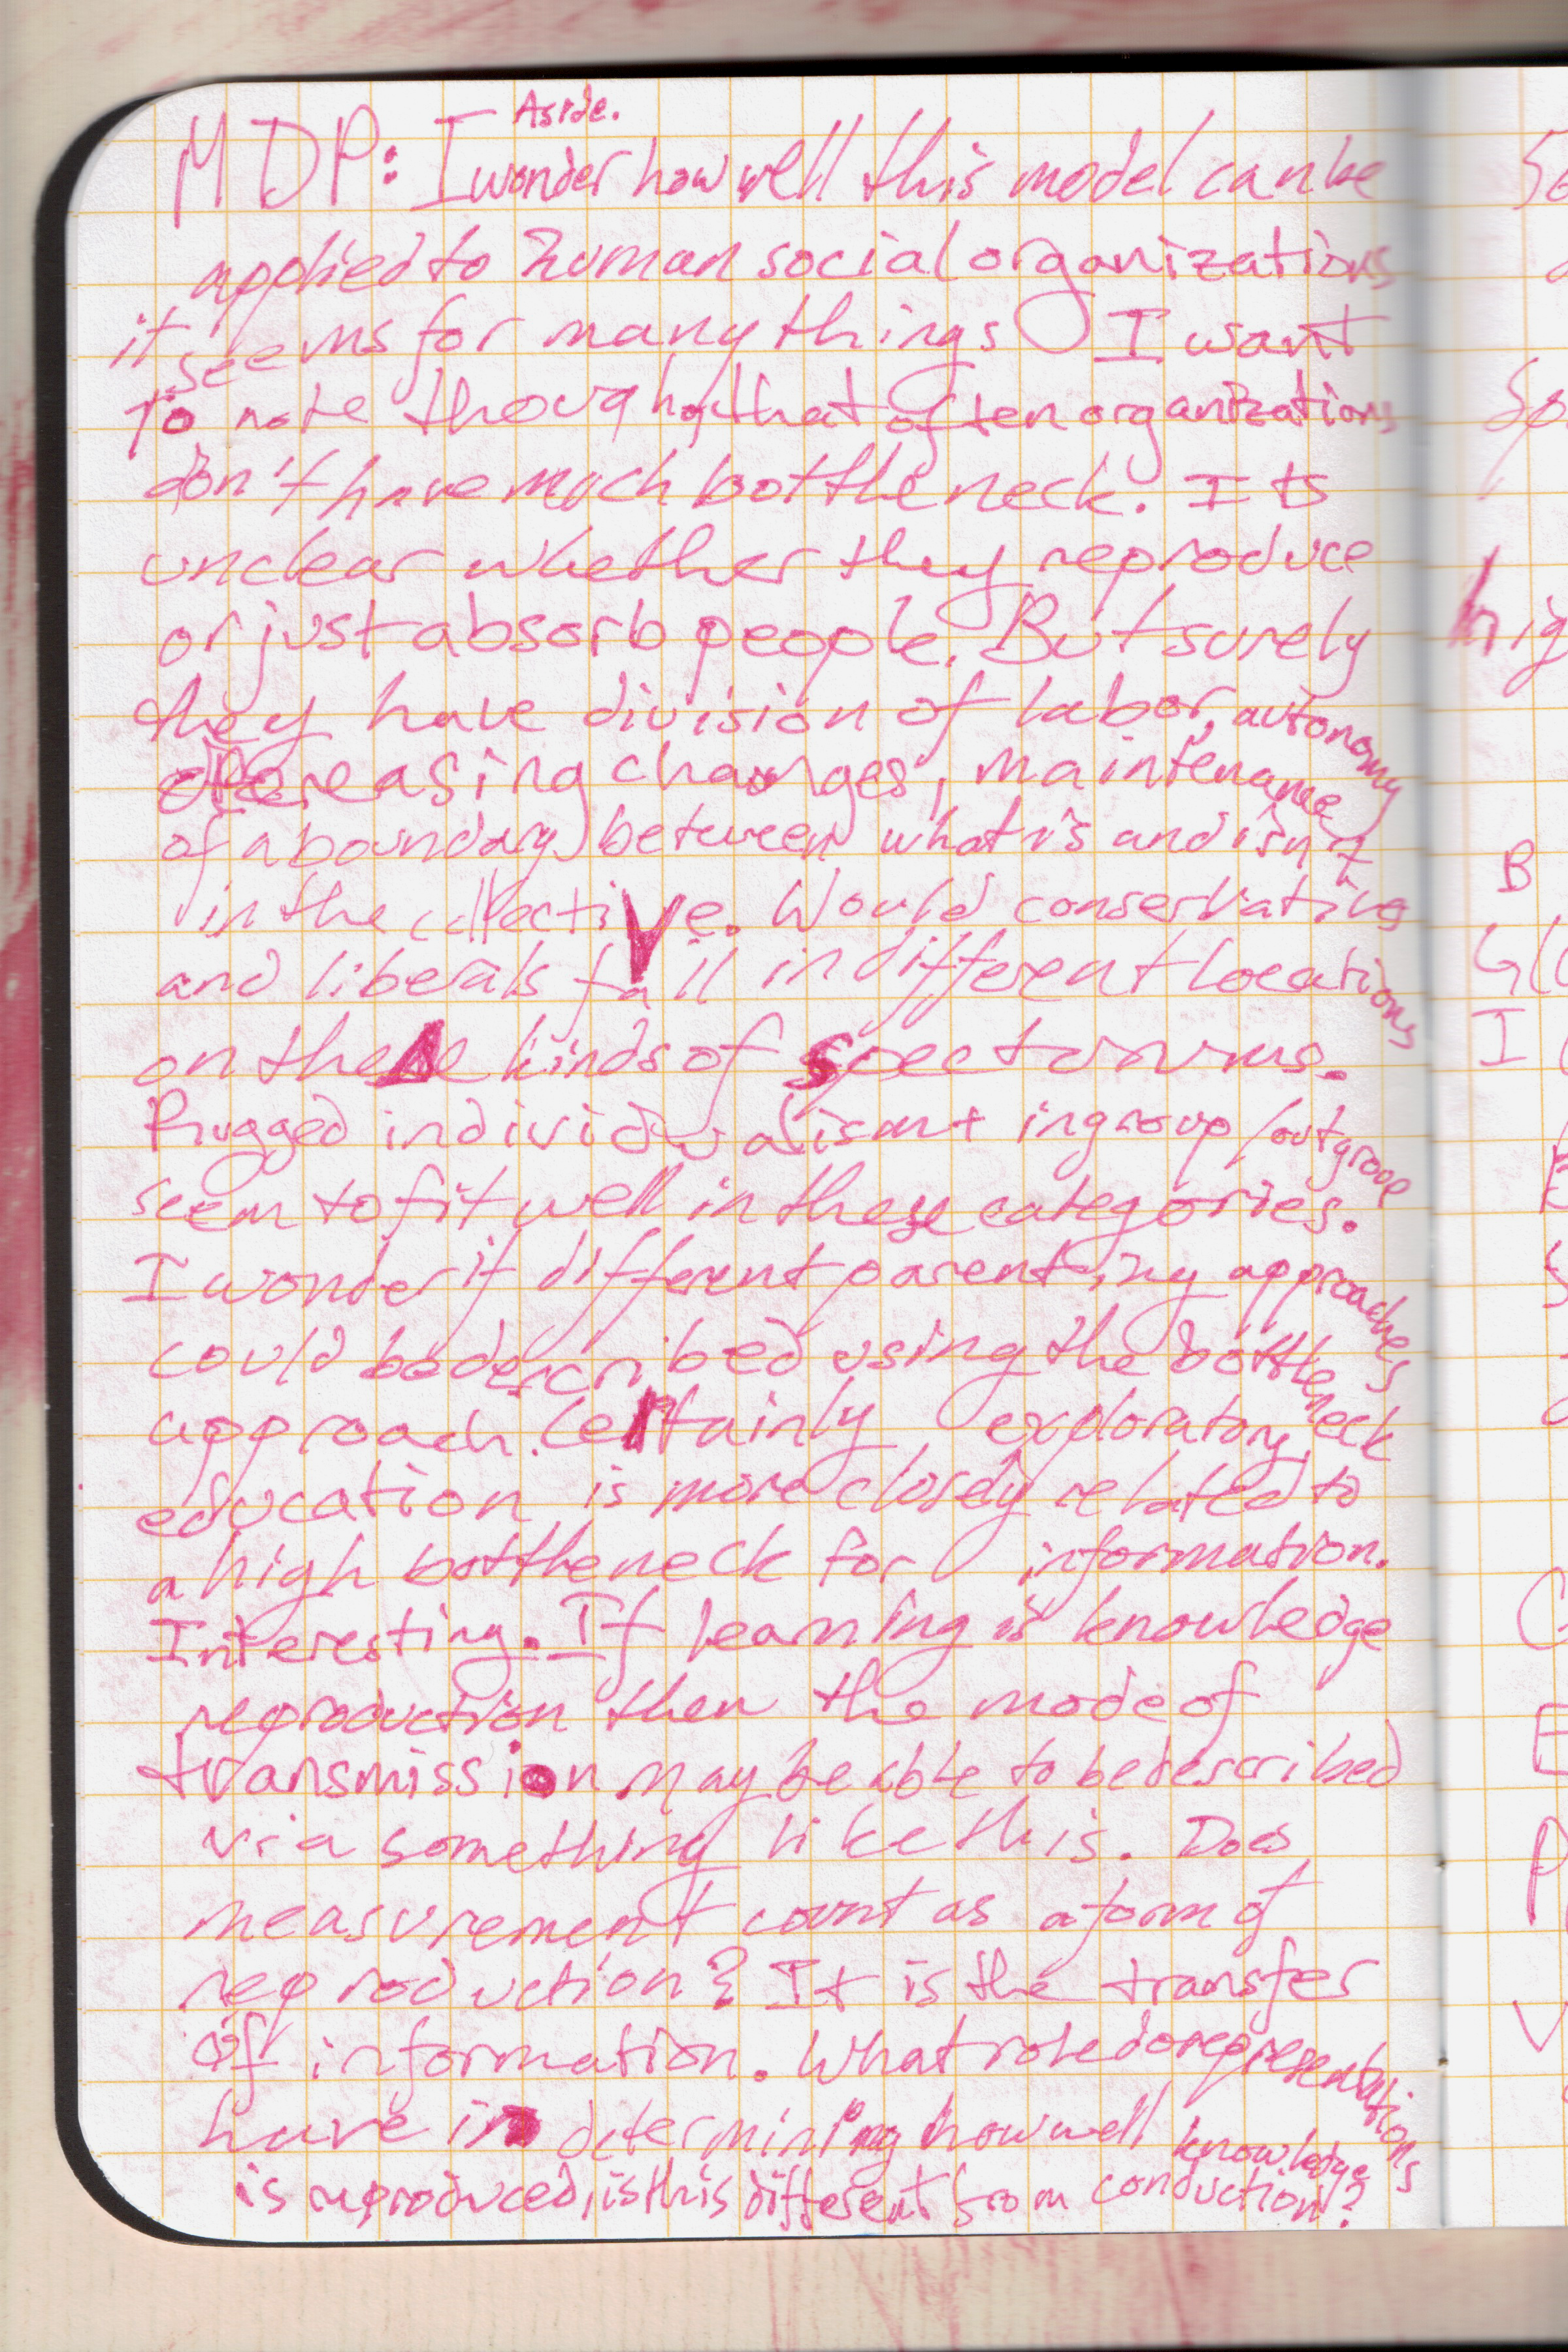 Aside.
MDP: I wonder how well this model can be
applied to human social organizations
it seems for many things I want
To note though, that often organizations
don't have much bottleneck. Its
unclear whether they reproduce
or just absorb people. But surely
they have division of labor, autonomy
decreasing changes, maintenance
of a boundary between what is and isn't
in the collective. Would conservatives
and liberals fall in different locations
on these kinds of spectrums.
Rugged individualism + ingroup/outgroup
seem to fit well in these categories.
I wonder if different parenting approaches
could be described using the bottleneck
approach. Certainly exploratory
education is more closely related to
a high bottleneck for information.
Interesting. If learning is knowledge
reproduction then the mode of
transmission may be able to be described
via something like this. Does
measurement count as a form of
reproduction? It is the transfer
of information. What role do representations
have in determining how well knowledge
is reproduced, is this different from conduction?
So
So
hig
B
I
C
E
P
V